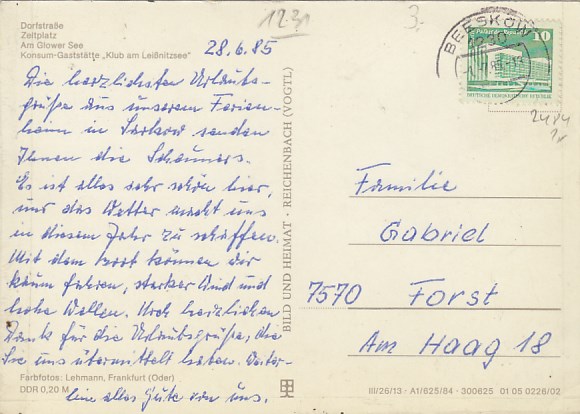 Dorfstraße
Zeltplatz
Am Glower See
Konsum-Gaststätte „Klub am Leißnitzsee"
12.31
3,-
28.6.85
Die herzlichsten Urlaubs-
grüße aus unserem Ferien-
heim in Sarkow senden
Ihnen die
Es ist alles sehr schön hier,
nur das Wetter macht uns
in diesem Jahr zu schaffen.
Mit dem Boot können wir
kaum fahren, starker Wind und
hohe Wellen. Noch herzlichen
Dank für die Urlaubsgrüße, die
Sie uns übermittelt haben. Weiter-
hin alles Gute von uns.
Farbfotos: Lehmann, Frankfurt (Oder)
DDR 0,20 M
BILD UND HEIMAT · REICHENBACH (VOGTL)
BEESKOW
1230
10
DEUTSCHE DEMOKRATISCHE REPUBLIK
2484
Familie
Gabriel
7570 Forst
Am Haag 18
III/26/13 · A1/625/84 · 300625 01 05 0228/02